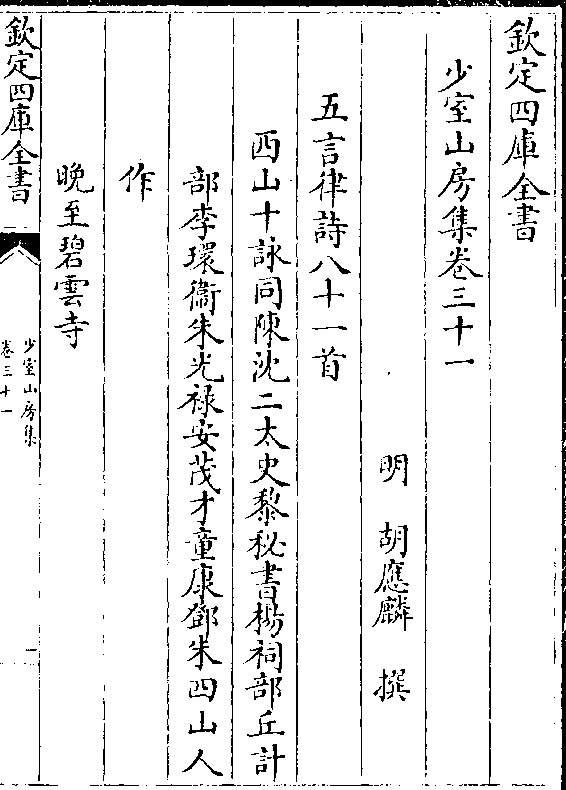 欽定四庫全書
少室山房集卷三十一
明 胡應麟 撰
五言律詩八十一首
西山十詠同陳沈二太史黎秘書楊祠部丘計
部李環衞朱光禄安茂才童康鄧朱四山人
作
晚至碧雲寺
欽定四庫全書
少室山房集
卷三十一
一